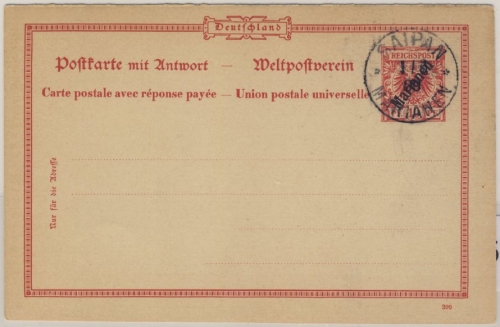 Deutschland
Postkarte mit Antwort — Weltpostverein
Carte postale avec réponse payée — Union postale universelle
SAIPAN
REICHSPOST
Marianen
MARIANEN
Nur für die Adresse